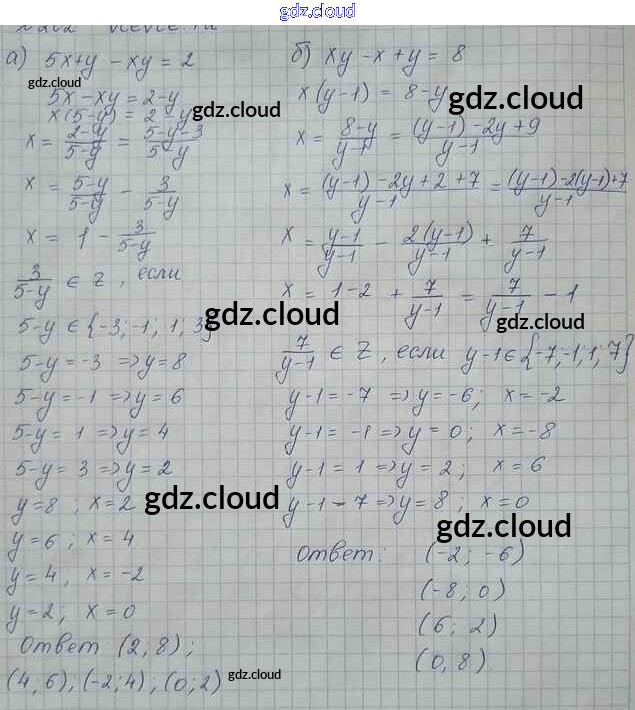 gdz.cloud
а) 5x+y-xy=2
gdz.cloud
5x-xy=2-y
x(5-y)=2-y
x = (2-y)/(5-y) = (5-y-3)/(5-y)
x = (5-y)/(5-y) - 3/(5-y)
x = 1 - 3/(5-y)
3/(5-y) ∈ Z, если
5-y ∈ {-3; -1; 1; 3}
5-y=-3 => y=8
5-y=-1 => y=6
5-y=1 => y=4
5-y=3 => y=2
y=8; x=2
gdz.cloud
y=6; x=4
y=4, x=-2
y=2; x=0
Ответ (2; 8);
(4; 6), (-2; 4); (0; 2)
gdz.cloud
б) xy-x+y=8
gdz.cloud
x(y-1) = 8-y
gdz.cloud
x = (8-y)/(y-1) = ((y-1)-2y+9)/(y-1)
gdz.cloud
x = ((y-1)-2y+2+7)/(y-1) = ((y-1)-2(y-1)+7)/(y-1)
x = (y-1)/(y-1) - 2(y-1)/(y-1) + 7/(y-1)
gdz.cloud
x = 1-2 + 7/(y-1) = 7/(y-1) - 1
gdz.cloud
7/(y-1) ∈ Z, если y-1 ∈ {-7, -1, 1; 7}
y-1=-7 => y=-6; x=-2
y-1=-1 => y=0; x=-8
y-1=1 => y=2; x=6
y-1-7 => y=8; x=0
gdz.cloud
Ответ: (-2; -6)
(-8; 0)
(6; 2)
(0, 8)